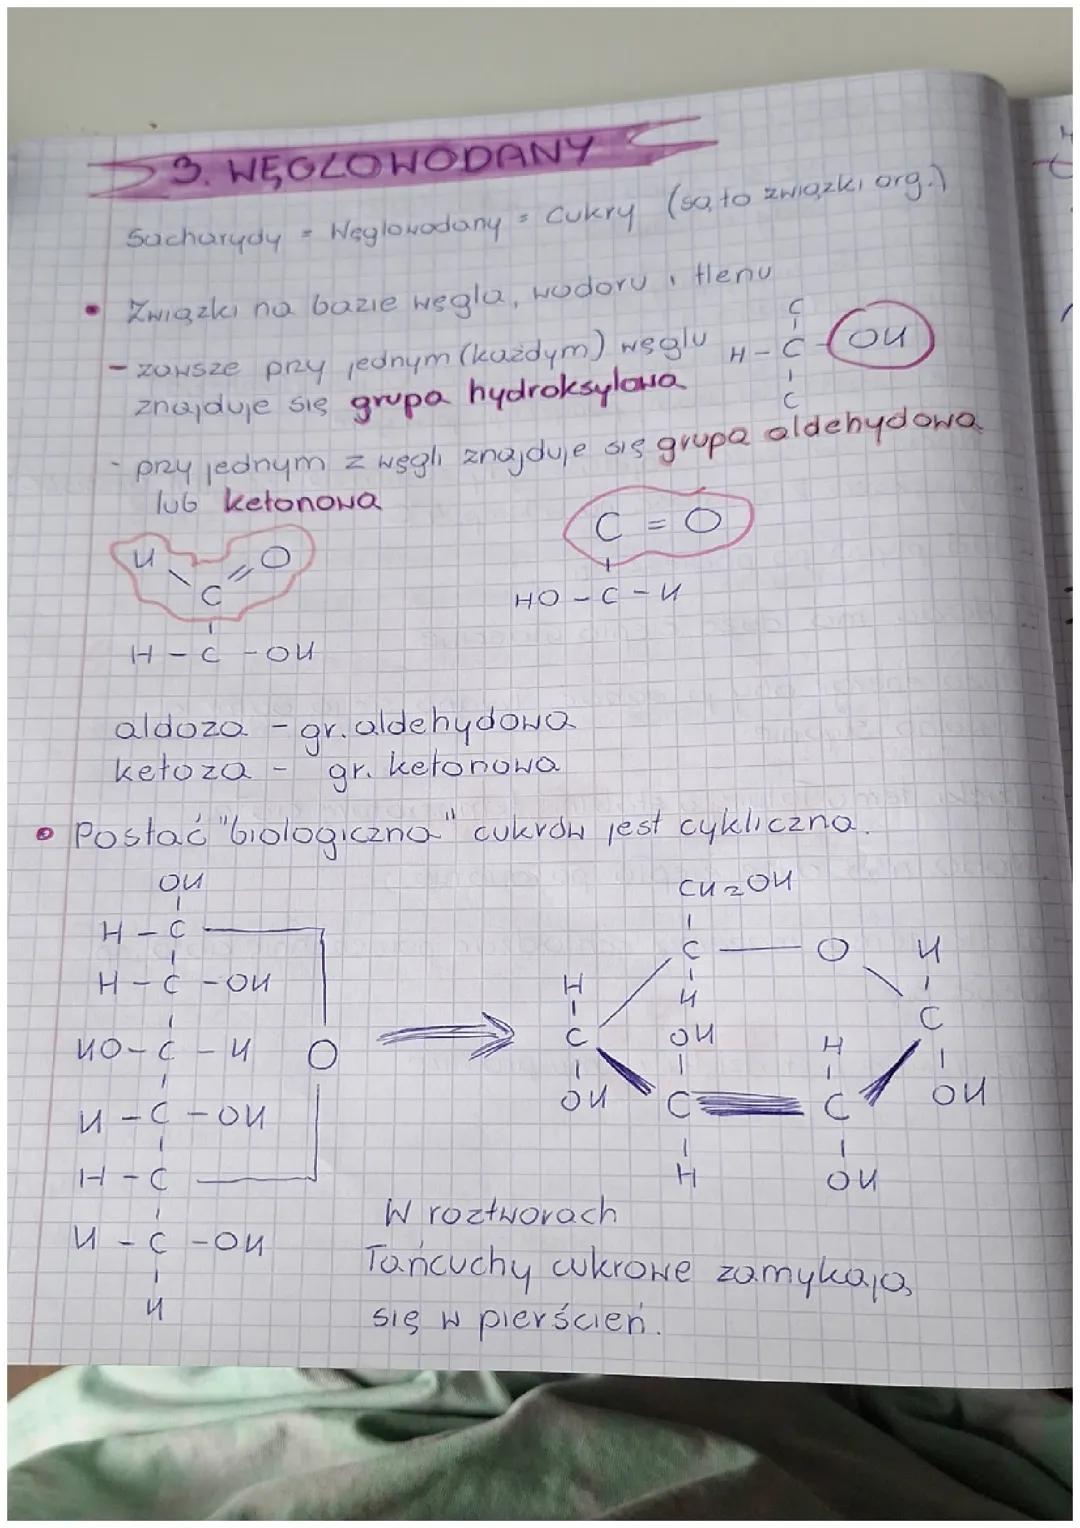 3. WĘGLOWODANY
Sacharydy = Węglowodany = Cukry (są to związki org.)
• Związki na bazie węgla, wodoru i tlenu
- zawsze przy jednym (każdym) węglu
znajduje się grupa hydroksylowa
C
H - C - OH
C
- przy jednym z węgli znajduje się grupa aldehydowa
lub ketonowa
H O
C
H - C - OH
C = O
HO - C - H
aldoza - gr. aldehydowa
ketoza - gr. ketonowa
• Postać "biologiczna" cukrów jest cykliczna.
OH
H - C
H - C - OH
HO - C - H O
H - C - OH
H - C
H - C - OH
H
CH2OH
C O H
H H C
C OH H OH
OH C C
H OH
W roztworach
Łańcuchy cukrowe zamykają
się w pierścień.